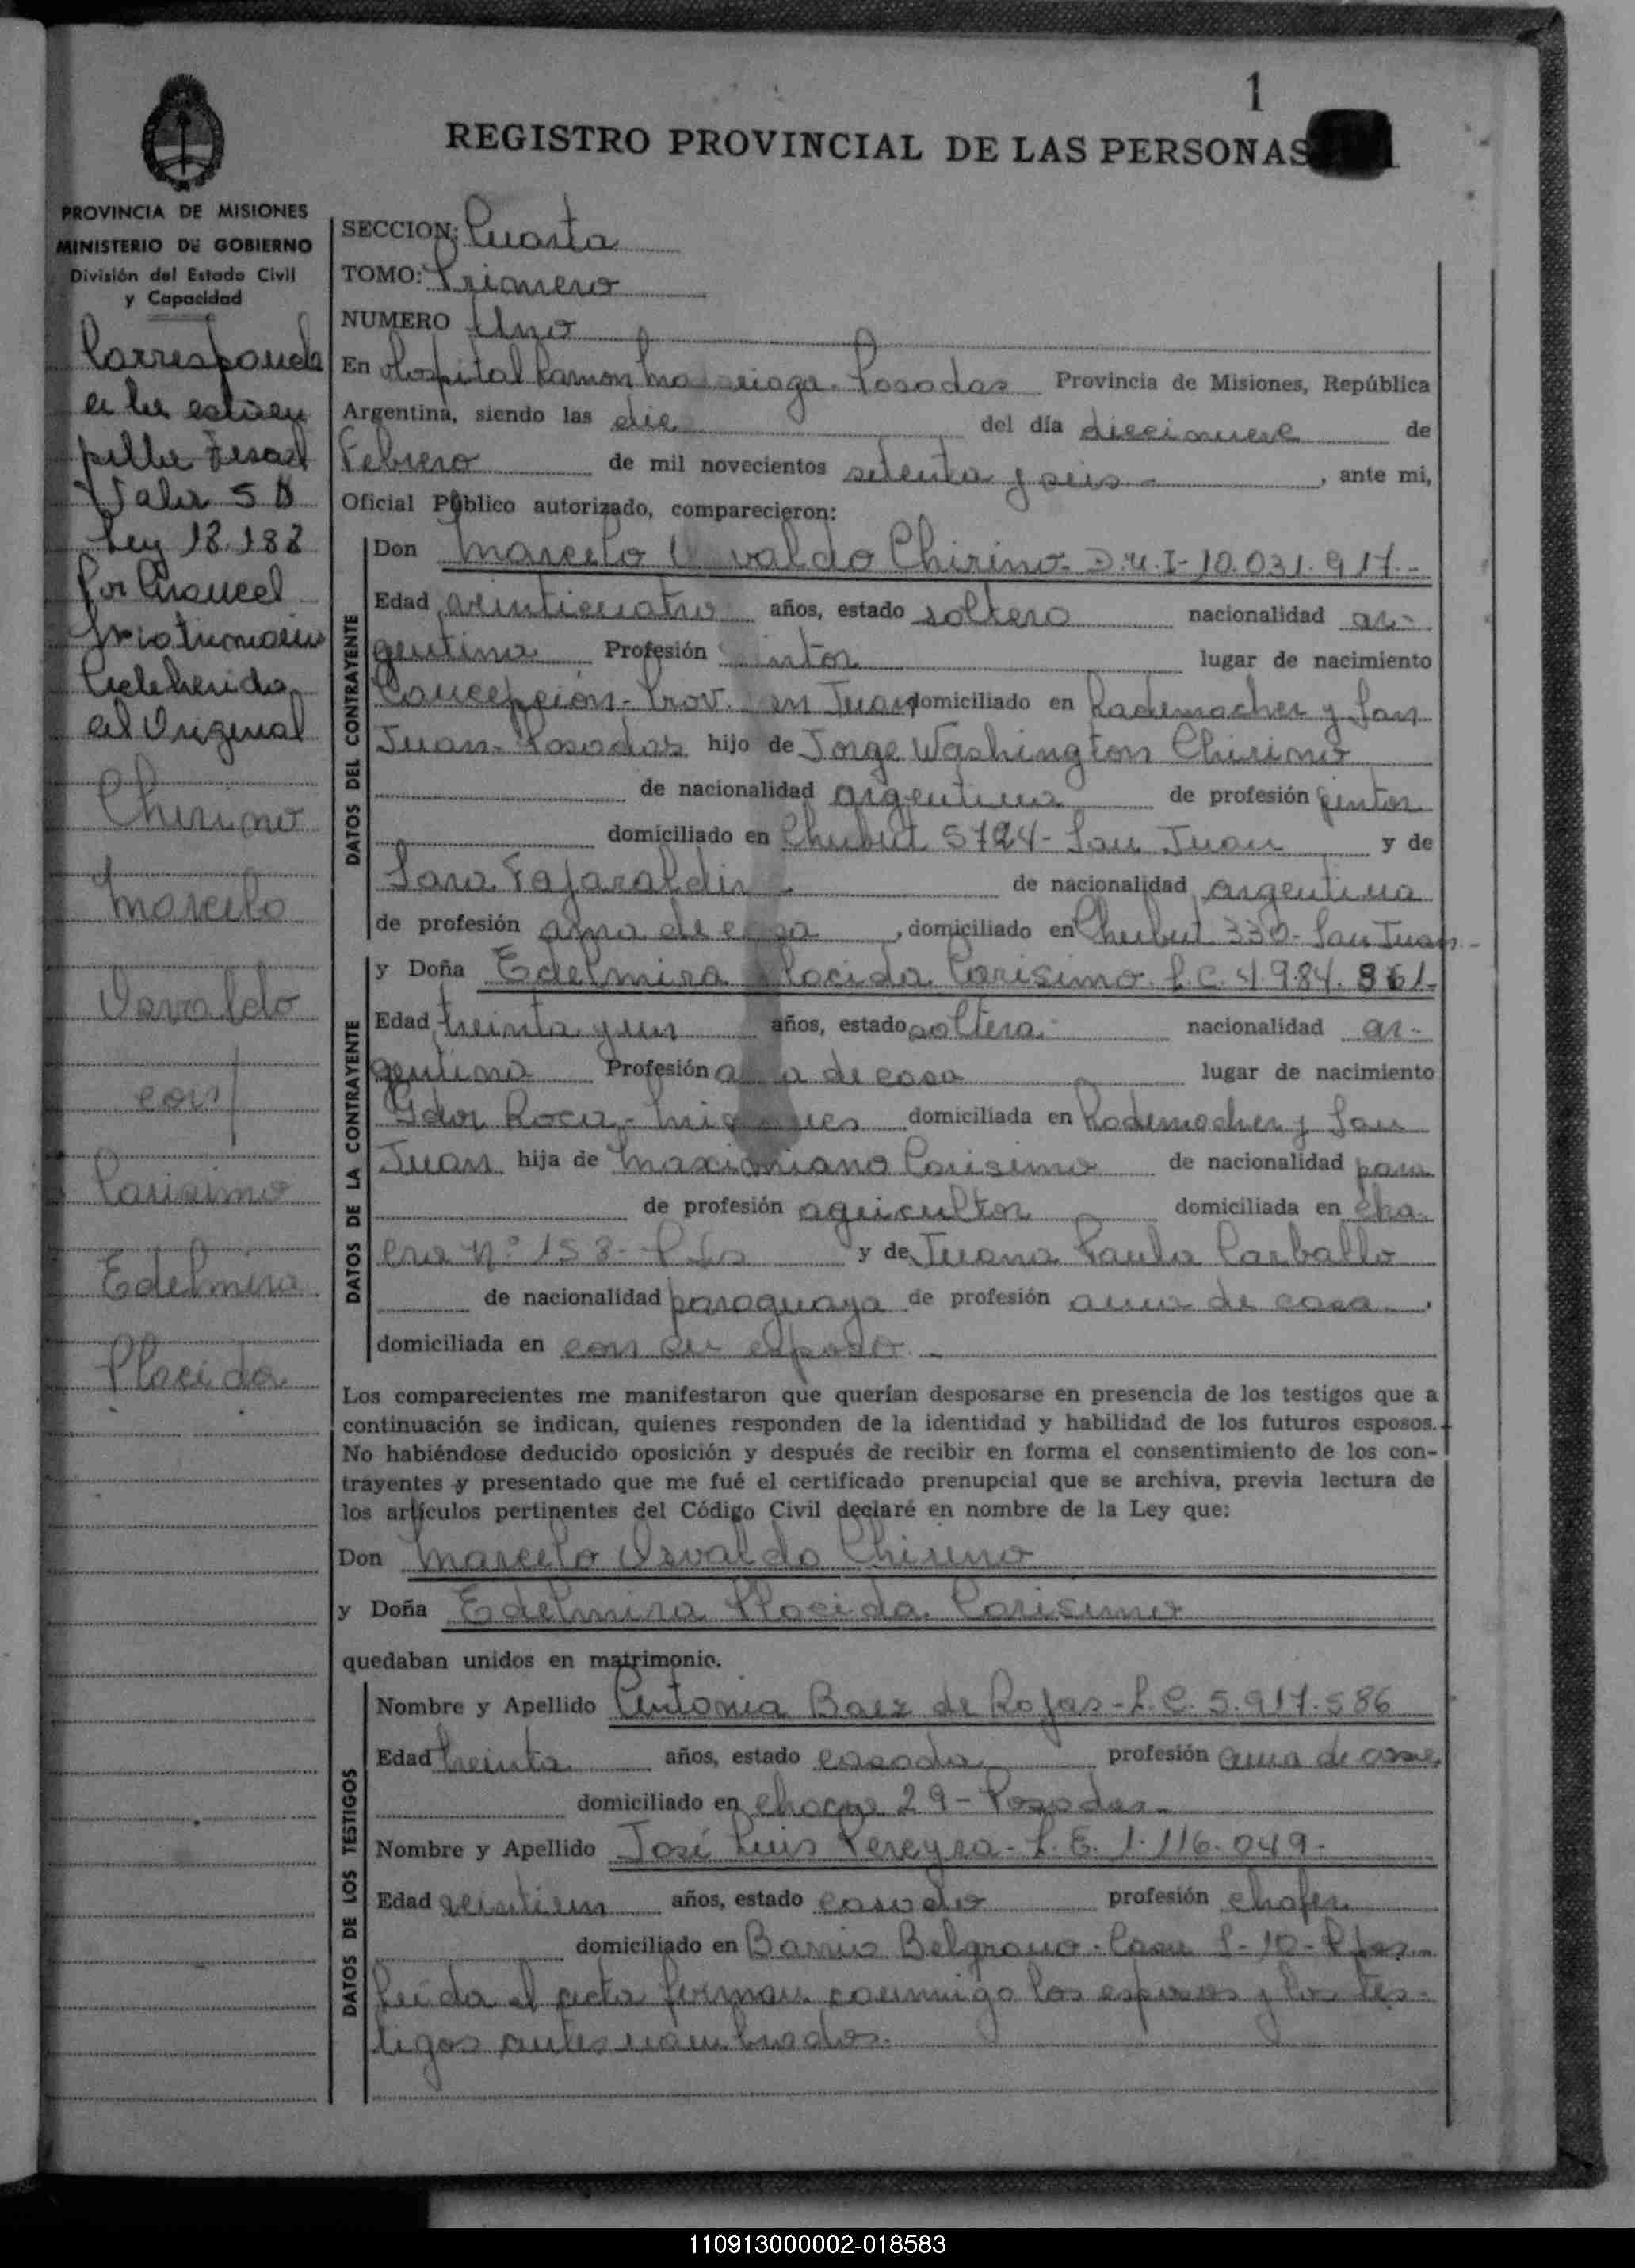 1
REGISTRO PROVINCIAL DE LAS PERSONAS
PROVINCIA DE MISIONES
MINISTERIO DE GOBIERNO
División del Estado Civil
y Capacidad
Corresponde
Ley 18.188
por Arancel
el Original
Chirino
Marcelo
Osvaldo
con
Carisimo
Edelmira
Placida
SECCION: Cuarta
TOMO: Primero
NUMERO Uno
En Hospital Ramon Madariaga - Posadas Provincia de Misiones, República
Argentina, siendo las diez del día diecinueve de
Febrero de mil novecientos setenta y seis - , ante mi,
Oficial Público autorizado, comparecieron:
DATOS DEL CONTRAYENTE
Don Marcelo Osvaldo Chirino - D.N.I - 10.031.917 -
Edad veinticuatro años, estado soltero nacionalidad ar-
gentina Profesión pintor lugar de nacimiento
Concepción - Prov. San Juan domiciliado en Rademacher y San
Juan - Posadas hijo de Jorge Washington Chirino
de nacionalidad argentina de profesión pintor
domiciliado en Chubut 5724 - San Juan y de
Sara de nacionalidad argentina
de profesión ama de casa , domiciliado en Chubut 330 - San Juan -
DATOS DE LA CONTRAYENTE
y Doña Edelmira Placida Carisimo. L.C. 4.984.861-
Edad treinta y un años, estado soltera nacionalidad ar-
gentina Profesión ama de casa lugar de nacimiento
Gdor Roca - Misiones domiciliada en Rademacher y San
Juan hija de Maximiano Carisimo de nacionalidad para
de profesión agricultor domiciliada en cha
cra Nº 158 - Pdas y de Juana Paula Carballo
de nacionalidad paraguaya de profesión ama de casa ,
domiciliada en con su esposo -
Los comparecientes me manifestaron que querían desposarse en presencia de los testigos que a
continuación se indican, quienes responden de la identidad y habilidad de los futuros esposos.
No habiéndose deducido oposición y después de recibir en forma el consentimiento de los con-
trayentes y presentado que me fué el certificado prenupcial que se archiva, previa lectura de
los artículos pertinentes del Código Civil declaré en nombre de la Ley que:
Don Marcelo Osvaldo Chirino
y Doña Edelmira Placida Carisimo
quedaban unidos en matrimonio.
DATOS DE LOS TESTIGOS
Nombre y Apellido Antonia Baez de Rojas - L.C. 5.917.586
Edad treinta años, estado casada profesión ama de casa
domiciliado en chacra 29 - Posadas -
Nombre y Apellido José Luis Pereyra - L.E. 1.116.049 -
Edad veintiun años, estado casado profesión chofer
domiciliado en Barrio Belgrano - Casa - 10 - Pdas -
Leida el acta firman conmigo los esposos y los tes-
tigos antes nombrados.
110913000002-018583